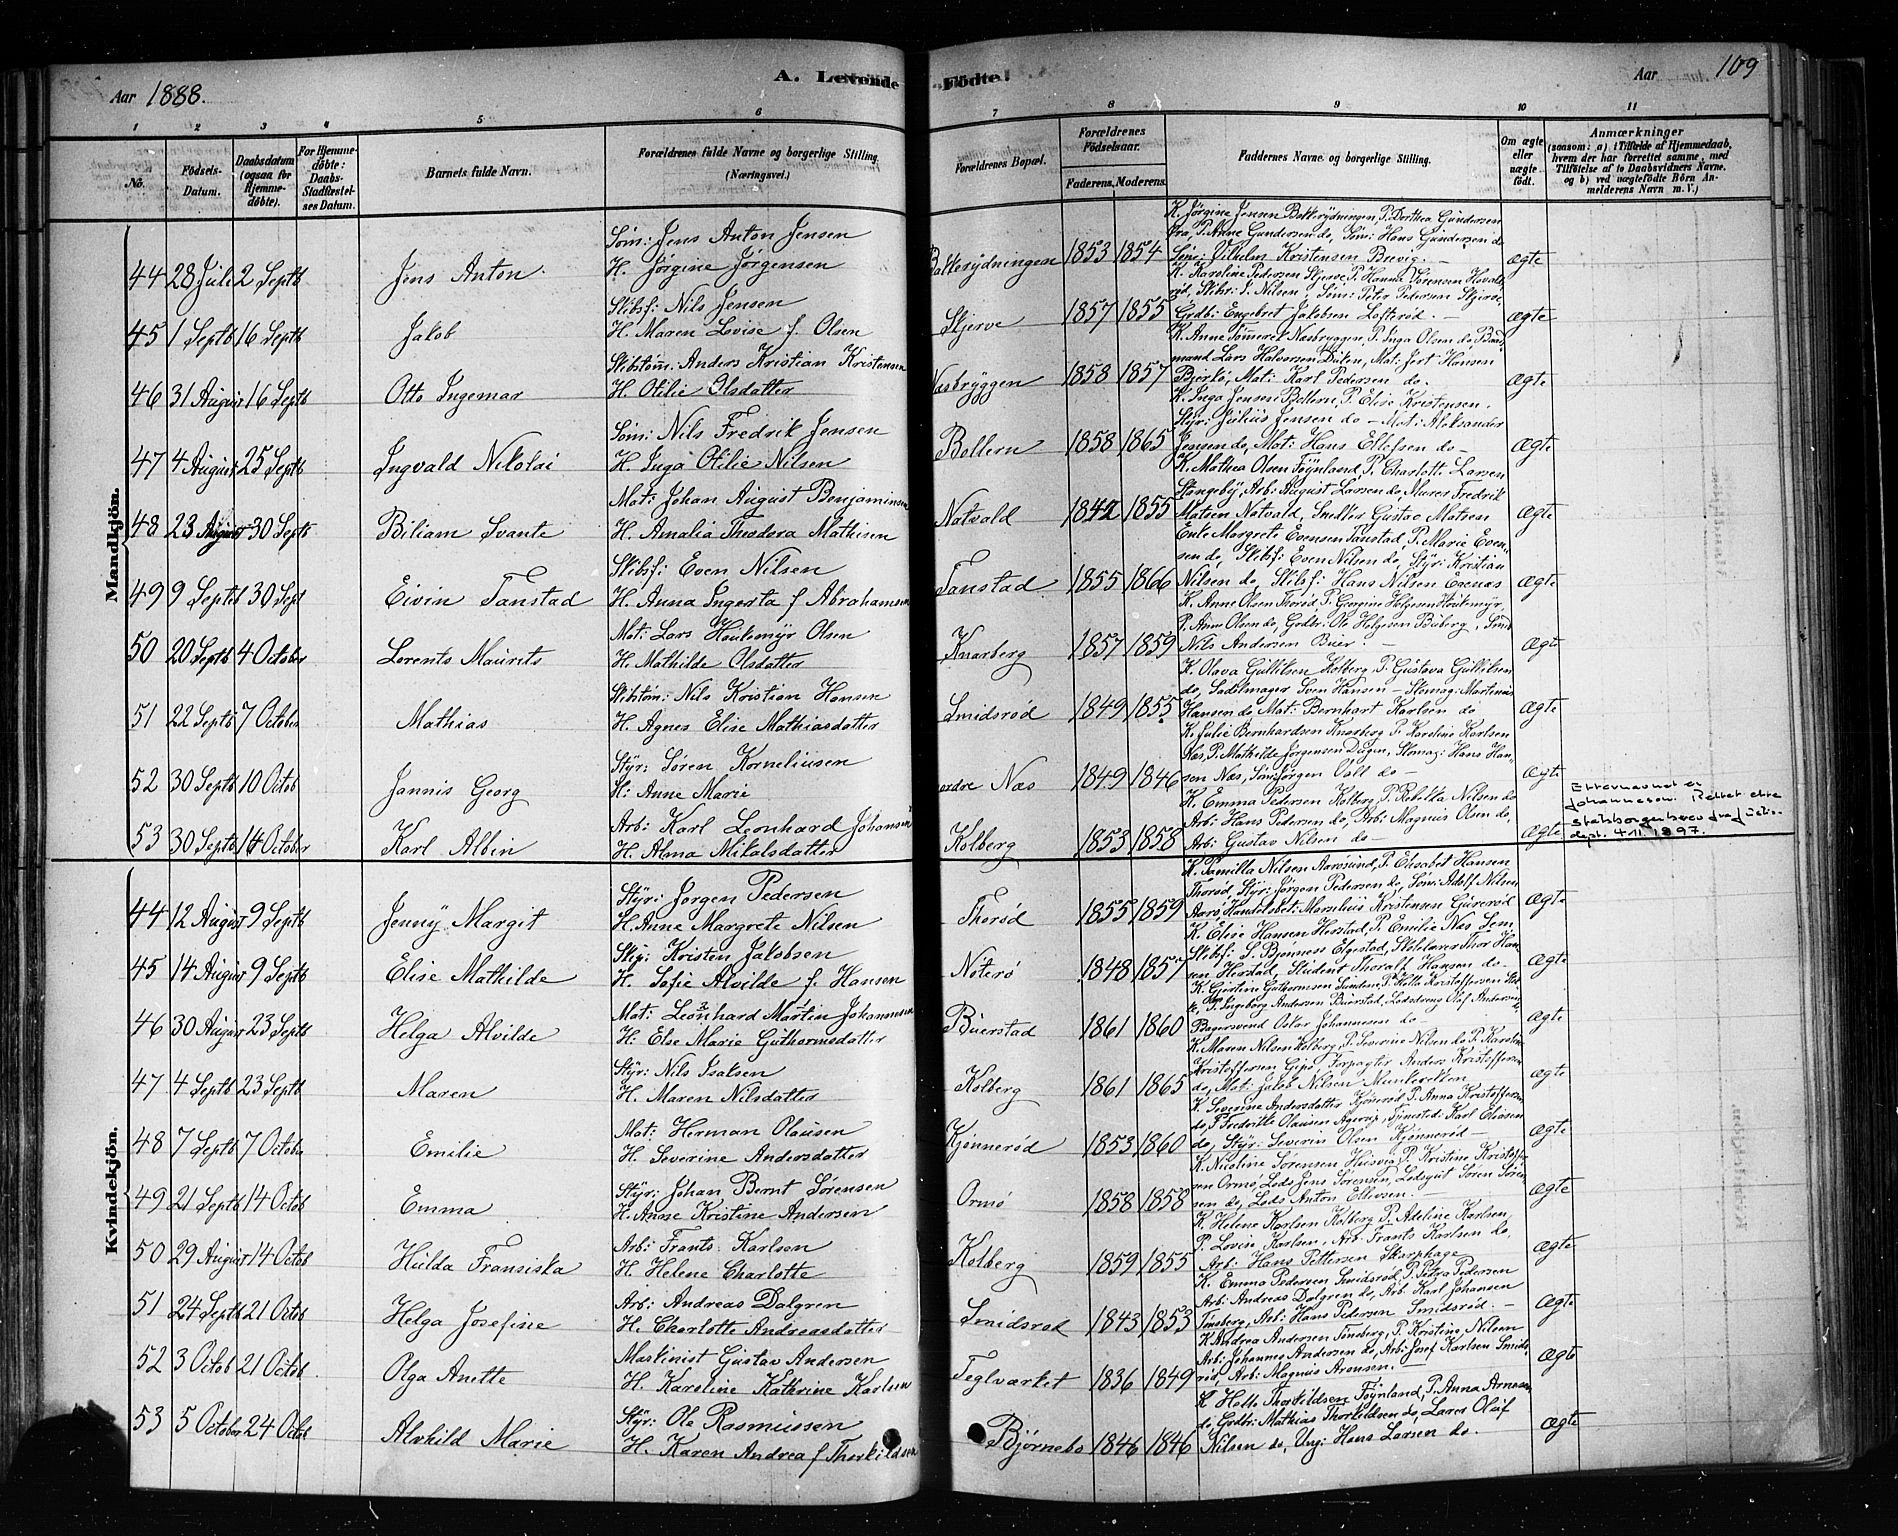 Aar 1888.
A. Levende
Födte.
Aar 109
1 2 3 4 5 6
7 8 9 10 11
No.
Födsels-Datum.
Daabsdatum (ogsaa for Hjemme-döbte).
For Hjemme-döbte: Daabs-Stadfæstel-ses Datum.
Barnets fulde Navn.
Forældrenes fulde Navne og borgerlige Stilling. (Næringsvei.)
Forældrenes Bopæl.
Forældrenes Födselsaar.
Faderens. Moderens.
Faddernes Navne og borgerlige Stilling.
Om ægte eller uægte födt.
Anmærkninger
(saasom: a) i Tilfælde af Hjemmedaab,
hvem der har forrettet samme, med
Tilföielse af to Daabsvidners Navne,
og b) ved uægtefödte Börn An-
melderens Navn m. V.)
Mandkjön.
Söm: Jens Anton Jensen
44 28 Juli 2 Septb Jens Anton. H. Jørgine Jørgensen
Skibsf: Nils Jensen
45 1 Septb 16 Septb Jakob H. Maren Lovise f. Olsen
Skibstöm: Anders Kristian Kristensen
46 31 August 16 Septb Otto Ingemar H. Otilie Olsdatter
Söm: Nils Fredrik Jensen
47 4 August 25 Septb Ingvald Nikolai H. Inga Otilie Nilsen
Mat: Johan August Benjaminsen
48 23 August 30 Septb Biliam Svante H. Amalia Theodora Mathisen
Skibsf: Even Nilsen
49 9 Septb 30 Sept Eivin Tanstad H. Anna Ingerta f Abrahamsen
Mat: Lars Houkemyr Olsen
50 20 Septb 4 October Lorents Maurits H. Mathilde Olsdatter
Skibstöm: Nils Kristian Hansen
51 22 Septb 7 October Mathias H. Agnes Elise Mathiasdatter
Styr: Søren Korneliusen
52 30 Septb 10 Octob Jannis Georg H: Anne Marie
Arb: Karl Leonhard Johansen
53 30 Septb 14 October Karl Albin H. Alma Mikalsdatter
Kvindekjön.
Styr: Jorgen Pedersen
44 12 August 9 Septb Jenny Margit H. Anne Margrete Nilsen
Skip: Kristen Jakobsen
45 14 August 9 Septb Elise Mathilde H. Sofie Alvilde f. Hansen
Mat: Leonhard Martin Johannesen
46 30 August 23 Septb Helga Alvilde H: Else Marie Guthormsdatter
Styr: Nils Isaksen
47 4 Septb 23 Septb Maren H. Maren Nilsdatter
Mat: Herman Olausen
48 7 Septb 7 October Emilie H. Severine Andersdatter
Styr: Johan Bernt Sørensen
49 21 Septb 14 Octob Emma H. Anne Kristine Andersen
Arb: Frants Karlsen
50 29 August 14 Octob Hulda Fransiska H. Helene Charlotte
Arb: Andreas Dalgren
51 24 Septb 21 Octob Helga Josefine H. Charlotte Andreasdatter
Maskinist Gustav Andersen
52 3 Octob 21 Octob Olga Anette H. Karoline Kathrine Karlsen
Styr: Ole Rasmussen
53 5 October 24 Octob Alvhild Marie H. Karen Andrea f Thorkildsen
K. Jørgine Jensen Bakkerydningen, P. Dorthea Gundersen
P. Anne Gundersen do, Söm: Hans Gundersen do
Bakkerydningen 1853 1854 Söm: Vilhelm Kristensen Brevig. — Ægte
K. Karoline Pedersen Skjerve P. Hanna Sørensen
Skibr: J. Nilsen, Söm: Peter Pedersen Skjerve,
Skjerve 1857 1855 Grdb: Engebret Jakobsen Lofterød. — Ægte
K. Anne Nasbryggen, P. Inga Olsen do
mand Lars Halvorsen Duken, Mat: Hansen
Nasbryggen 1858 1857 Bjerkö, Mat: Karl Pedersen do. Ægte
K. Inga Jensen Bollern, P. Elise Kristensen.
Styr: Julius Jensen do — Mat: Aleksander
Bollern 1858 1865 Jensen do, Mat: Hans Ellefsen do — Ægte
K. Mathea Olsen Føynland, P. Charlotte Larsen
Stangeby, Arb: August Larsen do, Murer Fredrik
Natvald 1842 1855 Matsen Natvald, Smed Gustav Matsen Ægte
Enke Margrete Evensen Tanstad, P. Marie Even-
sen do, Skibsf: Even Nilsen do, Styr: Kristian
Tanstad 1855 1866 Nilsen do, Skibsf: Hans Nilsen Egenæs Ægte
K. Anne Olsen Thorød, P. Georgine Helgesen Houkemyr,
P. Anne Olsen do, Grdbr: Ole Helgesen Buberg, Smed
Knarberg 1857 1859 Nils Andersen Buer. — Ægte
K. Olava Gulliksen Kolberg, P. Gustava Gulliksen
do, Sadelmager Sven Hansen — Skomag: Martinius
Smidsrød 1849 1855 Hansen do Mat: Bernhart Karlsen do Ægte
K. Julie Bernhardsen Knarberg P. Karoline Karlsen
Næs, P. Mathilde Jørgensen Dugen, Skomag: Hans Han-
Nordre Næs 1849 1846 sen Næs, Söm: Jørgen do — Ægte
K. Emma Pedersen Kolberg, P. Rebekka Nilsen do
Arb: Hans Pedersen do, Arb: Magnus Olsen do,
Kolberg 1853 1858 Arb: Gustav Nilsen do — Ægte
Etternavnet er
Johannesen. Rettet etter
statsborgerbrev fra Justis-
dept. 4/11 1897.
K. Pamilla Nilsen Aarøsund, P. Elisabet Hansen
Thorød, Styr: Jørgen Pedersen do, Söm: Adolf Nilsen
Thorød 1855 1859 Aarø, Handelsbet: Kristensen Ægte
K. Elise Hansen Herstad, P. Emilie Næs Sem
Skibsf: S. Bjønnes Elgestad, Thor Han-
Nøterø 1848 1857 sen Herstad, Student Thoralf Hansen do — Ægte
K. Gjertine Guthormsen Sunden, P. Helle Kristoffersen
P. Ingeborg Andersen Buerstad, Lodsdreng Olaf Andersen
Buerstad 1861 1860 Bagersvend Oskar Johannesen do — Ægte
K. Maren Nilsen Kolberg, P. Severine Nilsen do P. Karoline
Kristoffersen Gipø, Forpagter Anders Kristoffersen
Kolberg 1861 1865 do, Mat: Jakob Nilsen Munkerekken Ægte
K. Severine Andersdatter Kjønnerød P. Anna Kristoffersen
do, P. Fredrikke Olausen Agerø, Tjenested: Karl Eliasen
Kjønnerød 1853 1860 do, Styr: Severin Olsen Kjønnerød — Ægte
K. Nicoline Sørensen Husvig, P. Kristine Kristoffer-
sen Ormø, Lods Jens Sørensen, Lodsgut Søren Søren-
Ormø 1858 1858 sen do, Lods Anton Ellevsen. — Ægte
K. Helene Karlsen Kolberg P. Adeline Karlsen,
P. Lovise Karlsen, Arb: Frants Karlsen do,
Kolberg 1859 1855 Arb: Hans Pettersen Skarphage Ægte
K. Emma Pedersen Smidsrød, P. Petra Pedersen
Arb: Andreas Dalgren do, Arb: Karl Johansen
Smidsrød 1843 1853 Tønsberg, Arb: Hans Pedersen Smidsrød — Ægte
K. Andrea Andersen Tønsberg, P. Kristine Nilsen
Arb: Johannes Andersen do, Arb: Josef Karlsen Smids-
Teglværket 1836 1849 rød, Arb: Magnus Aronsen. — Ægte
K. Helle Thorkildsen Føynland, P. Anna Arnesen
do Grdbr: Mathias Thorkildsen do, Lærer Oluf
Bjørnebo 1846 1846 Nilsen do, Ung: Hans Larsen do. Ægte